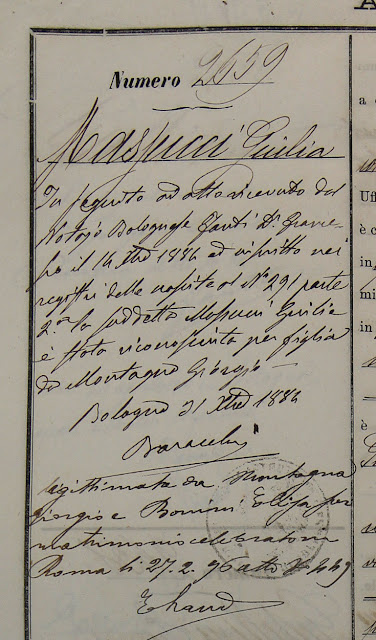 Numero 2659
Maspucci Giulia
In seguito ad atto ricevuto dal
Notajo Bolognese Zanti Dr. 
il 14 Xbre 1884 ed inscritto nei
registri delle nascite al N° 291 parte
2a la suddetta Giulia
è stata riconosciuta per figlia
da Montagna Giorgio
Bologna 31 Xbre 1884
legittimata da Montagna
Giorgio e Bonini Elisa per
matrimonio celebrato in
Roma li 27.2.96 atto
a
Uff
è c
in
mi
in
è